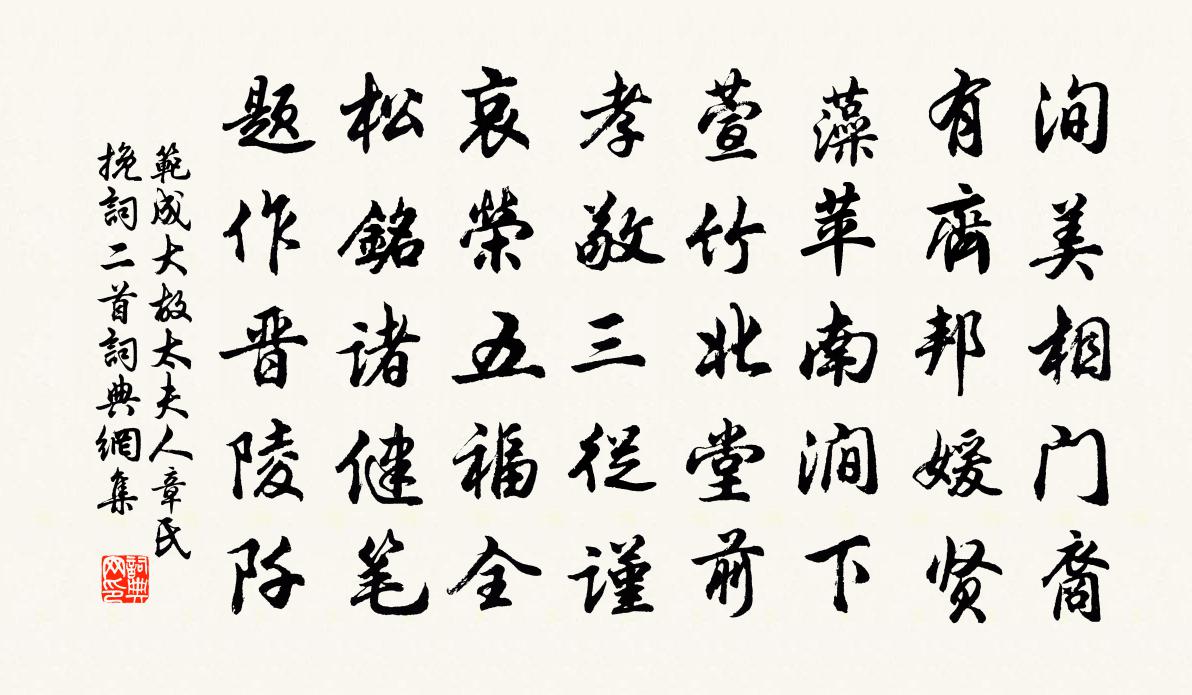 洵美相门裔
有齊邦媛贤
藻苹南涧下
萱竹北堂前
孝敬三従謹
哀榮五福全
松銘诸健笔
题作晋陵阡
範成大故太夫人章氏
挽詞二首詞典網集
詞典